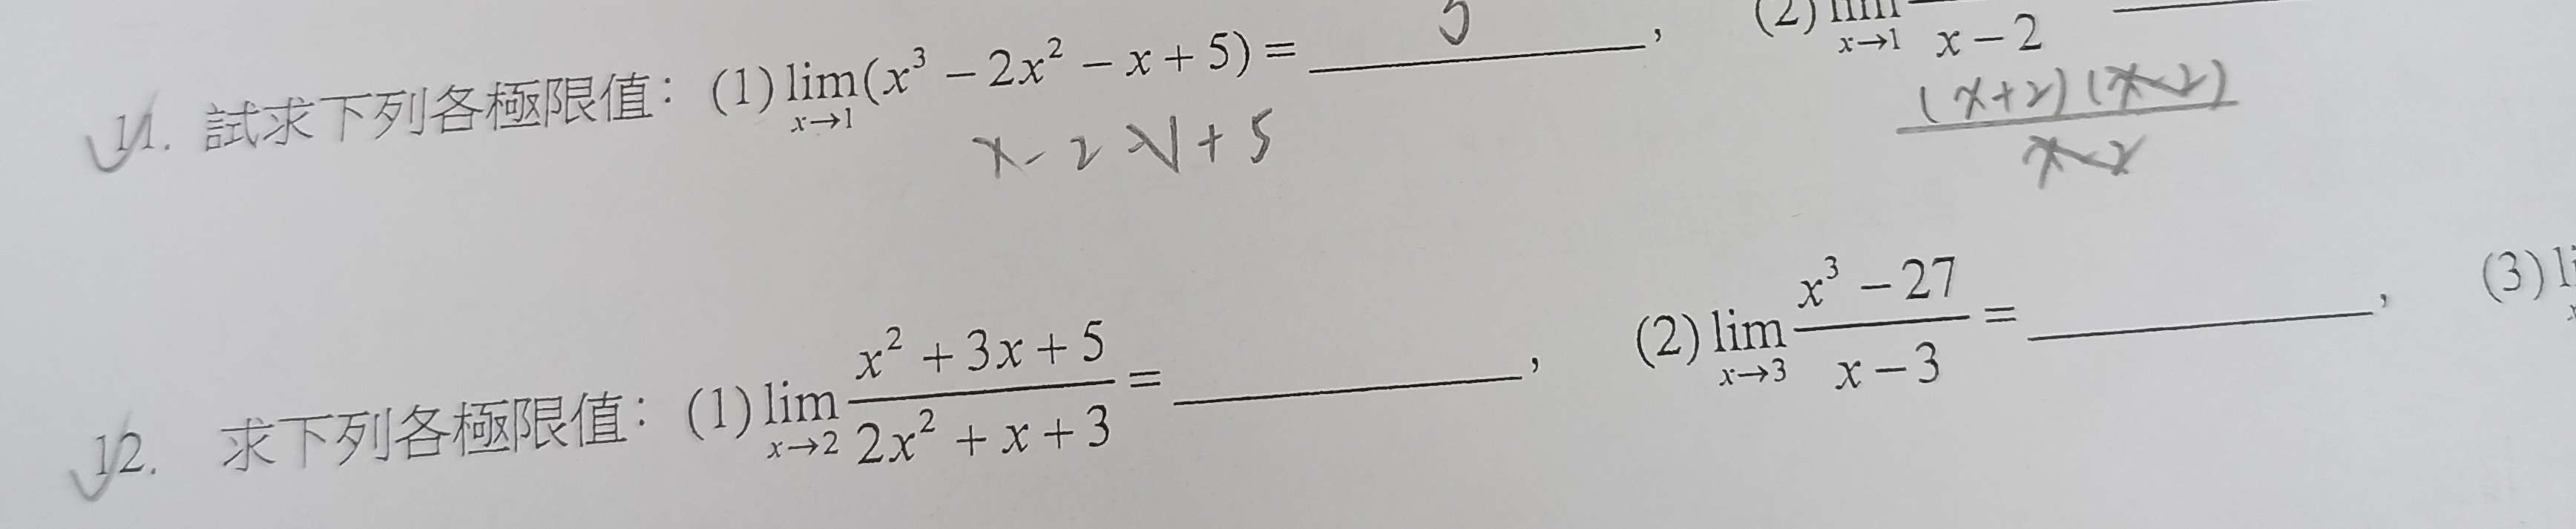 11. 試求下列各極限值：(1) lim x→1 (x³ − 2x² − x + 5) = ________， (2) lim x→1 x − 2
(x+2)(x-2) / x-2
12. 求下列各極限值：(1) lim x→2 (x² + 3x + 5) / (2x² + x + 3) = ________， (2) lim x→3 (x³ − 27) / (x − 3) = ________， (3)